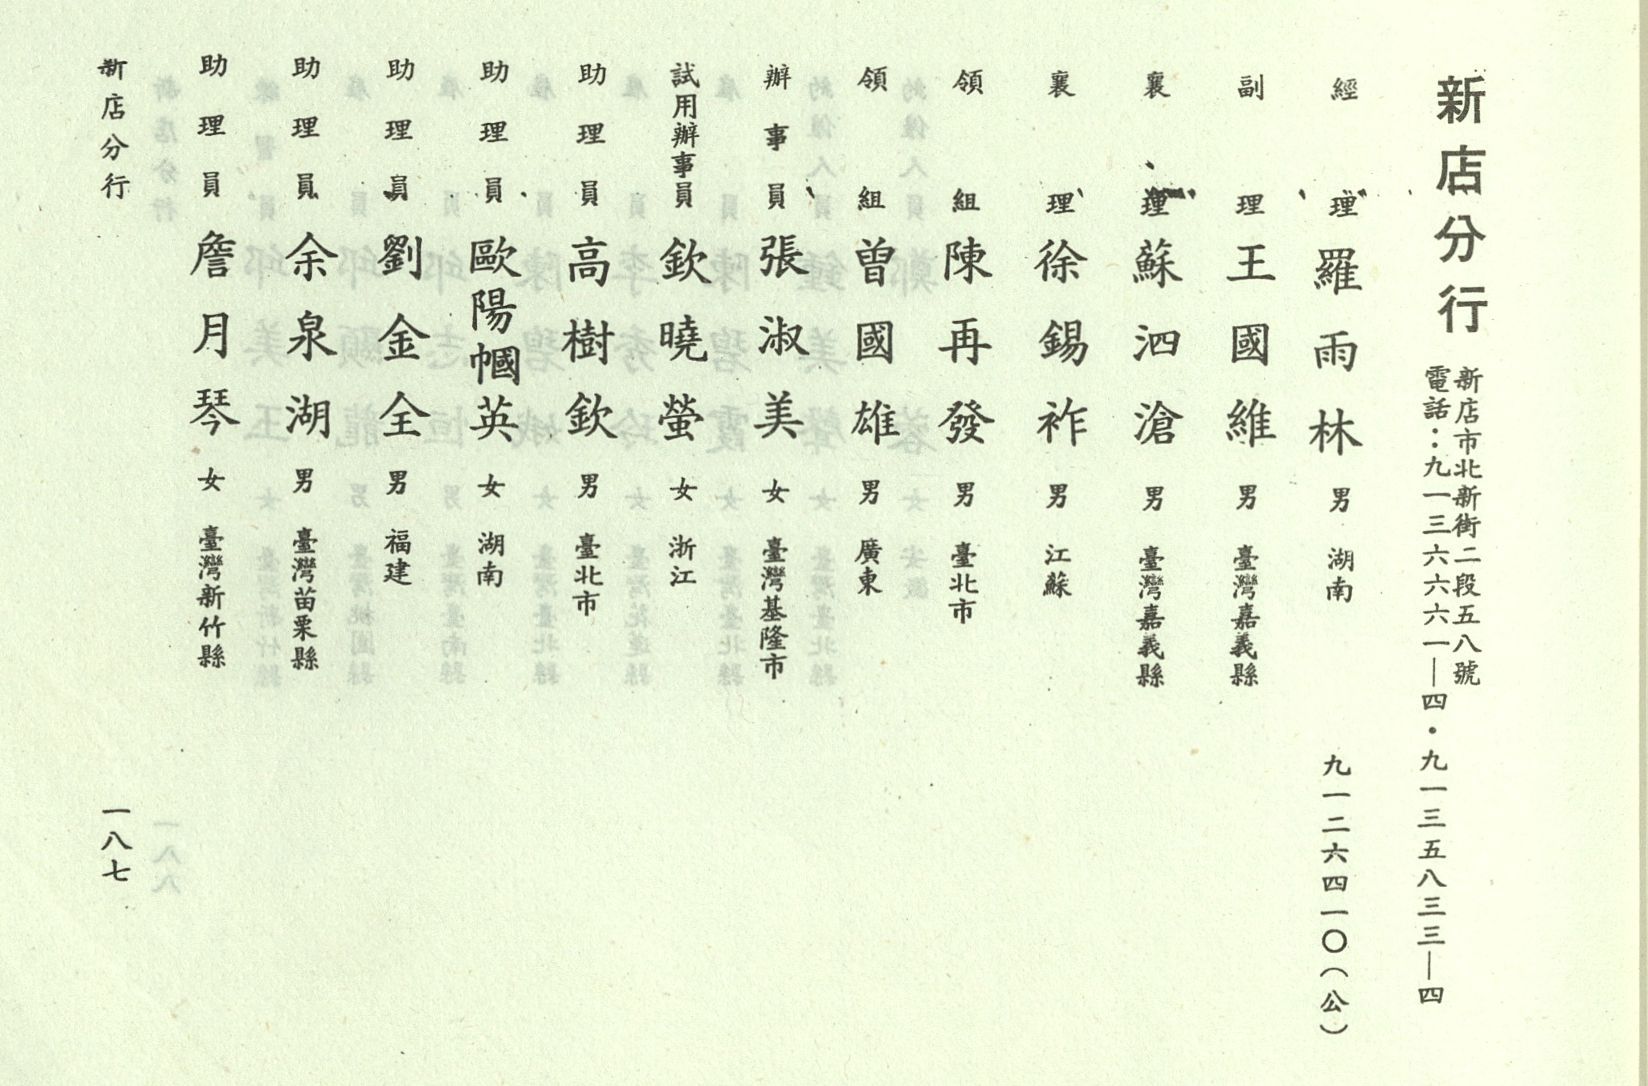 新店分行
新店市北新街二段五八號
電話：九一三六六六一—四・九一三五八三三—四
經理 羅雨林 男 湖南 九一二六四一〇（公）
副理 王國維 男 臺灣嘉義縣
襄理 蘇泗滄 男 臺灣嘉義縣
襄理 徐錫祚 男 江蘇
領組 陳再發 男 臺北市
領組 曾國雄 男 廣東
辦事員 張淑美 女 臺灣基隆市
試用辦事員 欽曉螢 女 浙江
助理員 高樹欽 男 臺北市
助理員 歐陽幗英 女 湖南
助理員 劉金全 男 福建
助理員 余泉湖 男 臺灣苗栗縣
助理員 詹月琴 女 臺灣新竹縣
新店分行 一八七